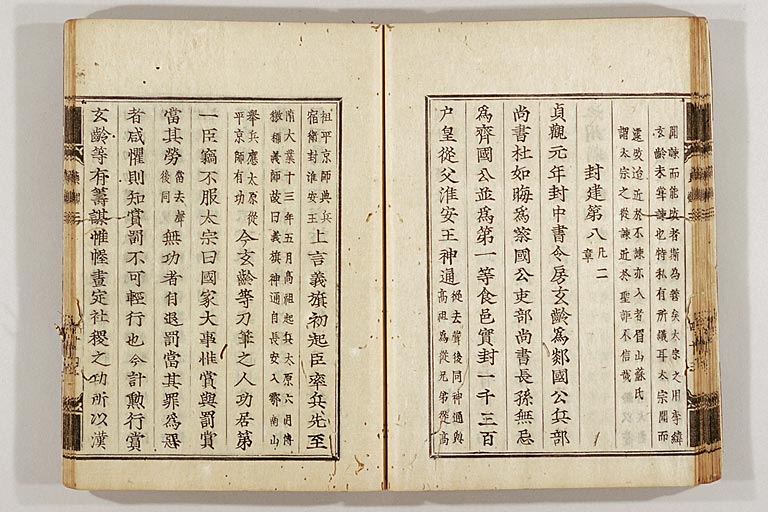 聞諫而能改者斯為善矣太宗之用李緯
玄齡未嘗諫也特私有所議耳太宗聞而
遽改迨近於不諫亦入者眉山蘇氏
謂太宗之從諫近於聖詎不信哉
封建第八凡二章
貞觀元年封中書令房玄齡為邢國公兵部
尚書杜如晦為蔡國公吏部尚書長孫無忌
為齊國公並為第一等食邑實封一千三百
户皇從父淮安王神通從去聲後同神通與
高祖為從兄弟從高
祖平京師典兵
宿衛封淮安王上言義旗初起臣率兵先至
隋大業十三年五月高祖起兵太原六月傳
檄稱義師故曰義旗神通自長安入鄠南山
舉兵應太原從
平京師有功今玄齡等刀筆之人功居第
一臣竊不服太宗曰國家大事惟賞與罰賞
當其勞當去聲
後同無功者自退罰當其罪為惡
者咸懼則知賞罰不可輕行也今計勲行賞
玄齡等有籌謀帷幄畫定社稷之功所以漢